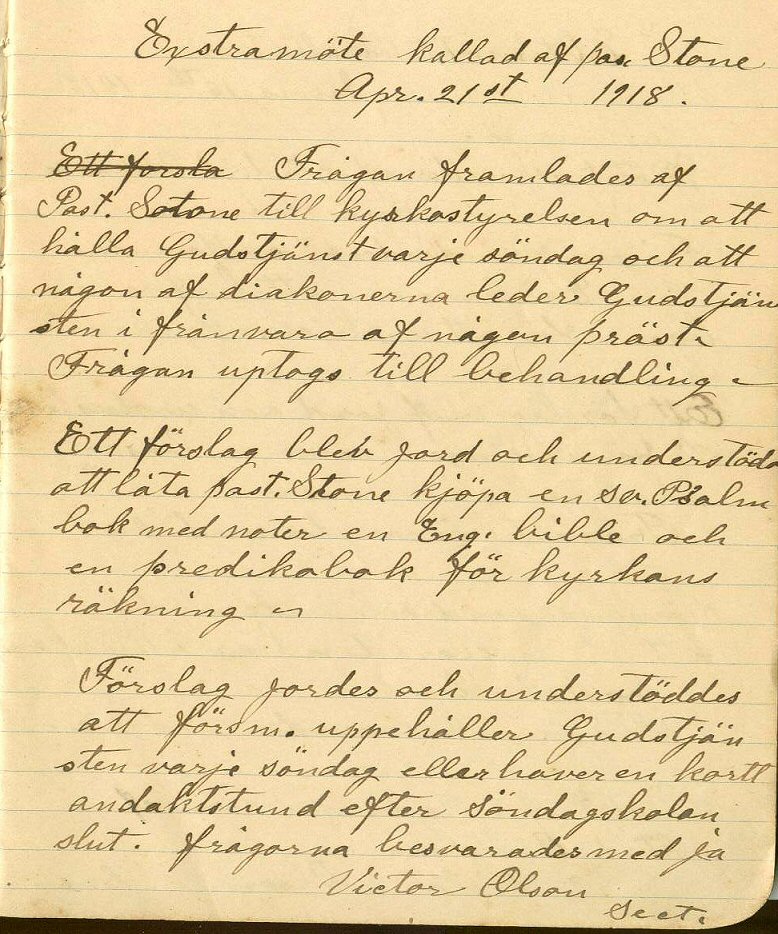 Exstramöte kallad af pas. Stone
Apr. 21st 1918.
Ett forsla Frågan framlades af
Past. Sotone till kyrkostyrelsen om att
hålla Gudstjänst varje söndag och att
någon af diakonerna leder Gudstjän
sten i frånvaro af någon präst.
Frågan uptogs till behandling
Ett förslag blev jord och understöda
att låta past. Stone kjöpa en sv. Psalm
bok med noter en Eng. bible och
en predikobok för kyrkans
räkning
Förslag jordes och understöddes
att försm. uppehåller Gudstjän
sten varje söndag eller haver en kortt
andaktstund efter söndagskolan
slut. frågorna besvarades med ja
Victor Olson
Sect.